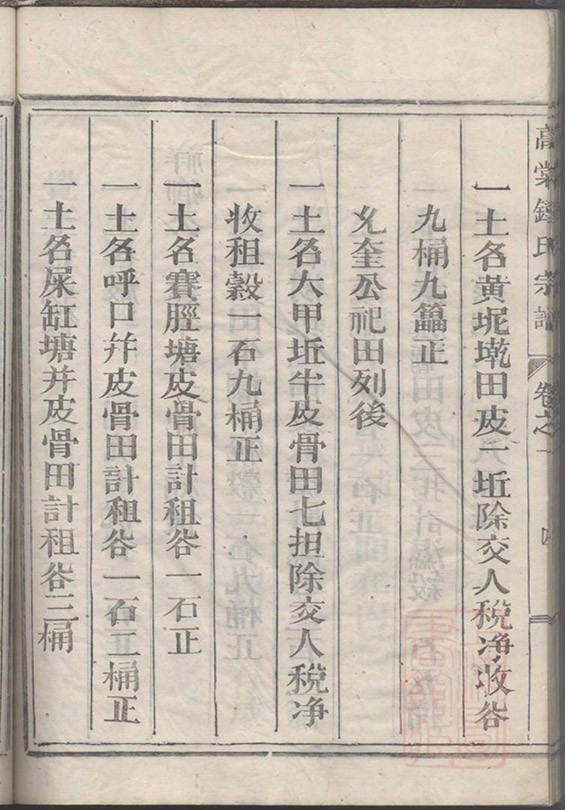 一土名黄坭墘田皮一坵除交人税净收谷
一九桶九籮正
允奎公祀田列後
一土名大甲坵半皮骨田七担除交人税净
收租穀一石九桶正
一土名賽脛塘皮骨田計租谷一石正
一土名呼口弁皮骨田計租谷一石二桶正
一土名屎缸塘弁皮骨田計租谷三桶
鍾氏宗譜 卷之一